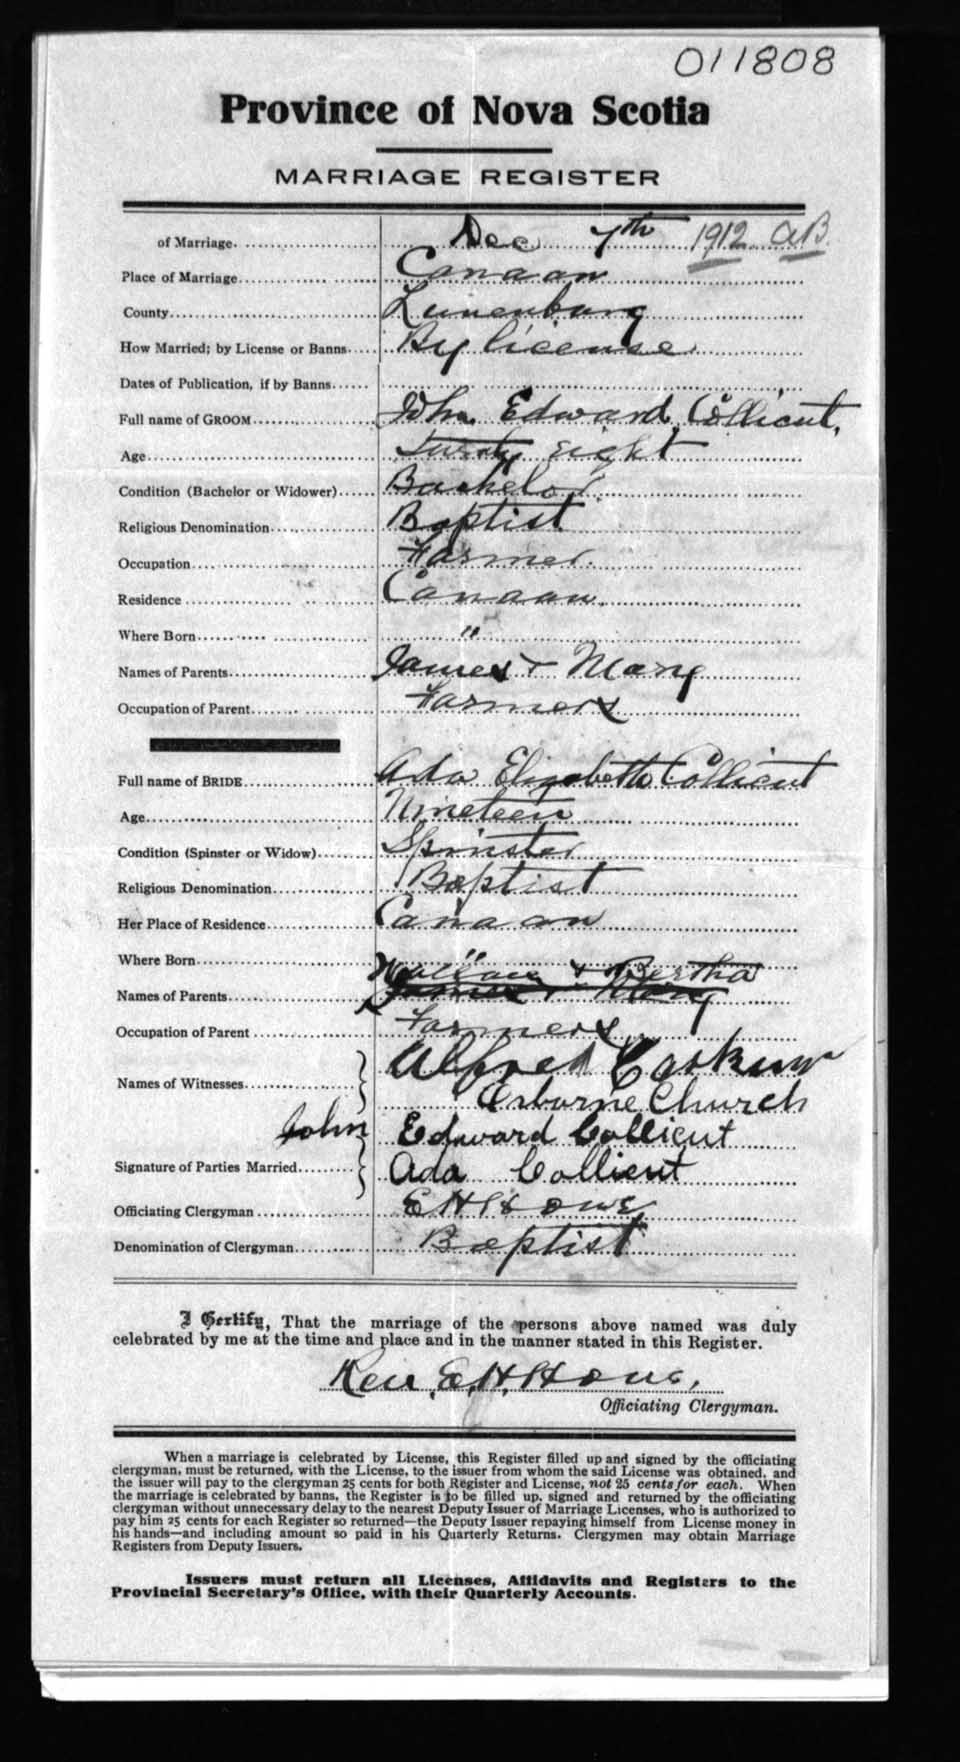 011808
Province of Nova Scotia
MARRIAGE REGISTER
of Marriage. Dec 7th 1912 AB.
Place of Marriage Canaan
County Lunenburg
How Married; by License or Banns By license
Dates of Publication, if by Banns
Full name of GROOM John Edward Collicut,
Age twenty eight
Condition (Bachelor or Widower) Bachelor
Religious Denomination Baptist
Occupation Farmer.
Residence Canaan.
Where Born "
Names of Parents James + Mary
Occupation of Parent Farmers
Full name of BRIDE Ada Elizabeth Collicut
Age Nineteen
Condition (Spinster or Widow) Spinster
Religious Denomination Baptist
Her Place of Residence Canaan
Where Born "
Wallace + Bertha
Names of Parents James + Mary
Occupation of Parent Farmers
Names of Witnesses Alfred
Osborne Church
John Edward Collicut
Signature of Parties Married Ada Collicut
Officiating Clergyman E H Howe
Denomination of Clergyman Baptist
I Certify, That the marriage of the persons above named was duly
celebrated by me at the time and place and in the manner stated in this Register.
Rev. E. H. Howe,
Officiating Clergyman.
When a marriage is celebrated by License, this Register filled up and signed by the officiating
clergyman, must be returned, with the License, to the issuer from whom the said License was obtained, and
the issuer will pay to the clergyman 25 cents for both Register and License, not 25 cents for each. When
the marriage is celebrated by banns, the Register is to be filled up, signed and returned by the officiating
clergyman without unnecessary delay to the nearest Deputy Issuer of Marriage Licenses, who is authorized to
pay him 25 cents for each Register so returned—the Deputy Issuer repaying himself from License money in
his hands—and including amount so paid in his Quarterly Returns. Clergymen may obtain Marriage
Registers from Deputy Issuers.
Issuers must return all Licenses, Affidavits and Registers to the
Provincial Secretary's Office, with their Quarterly Accounts.